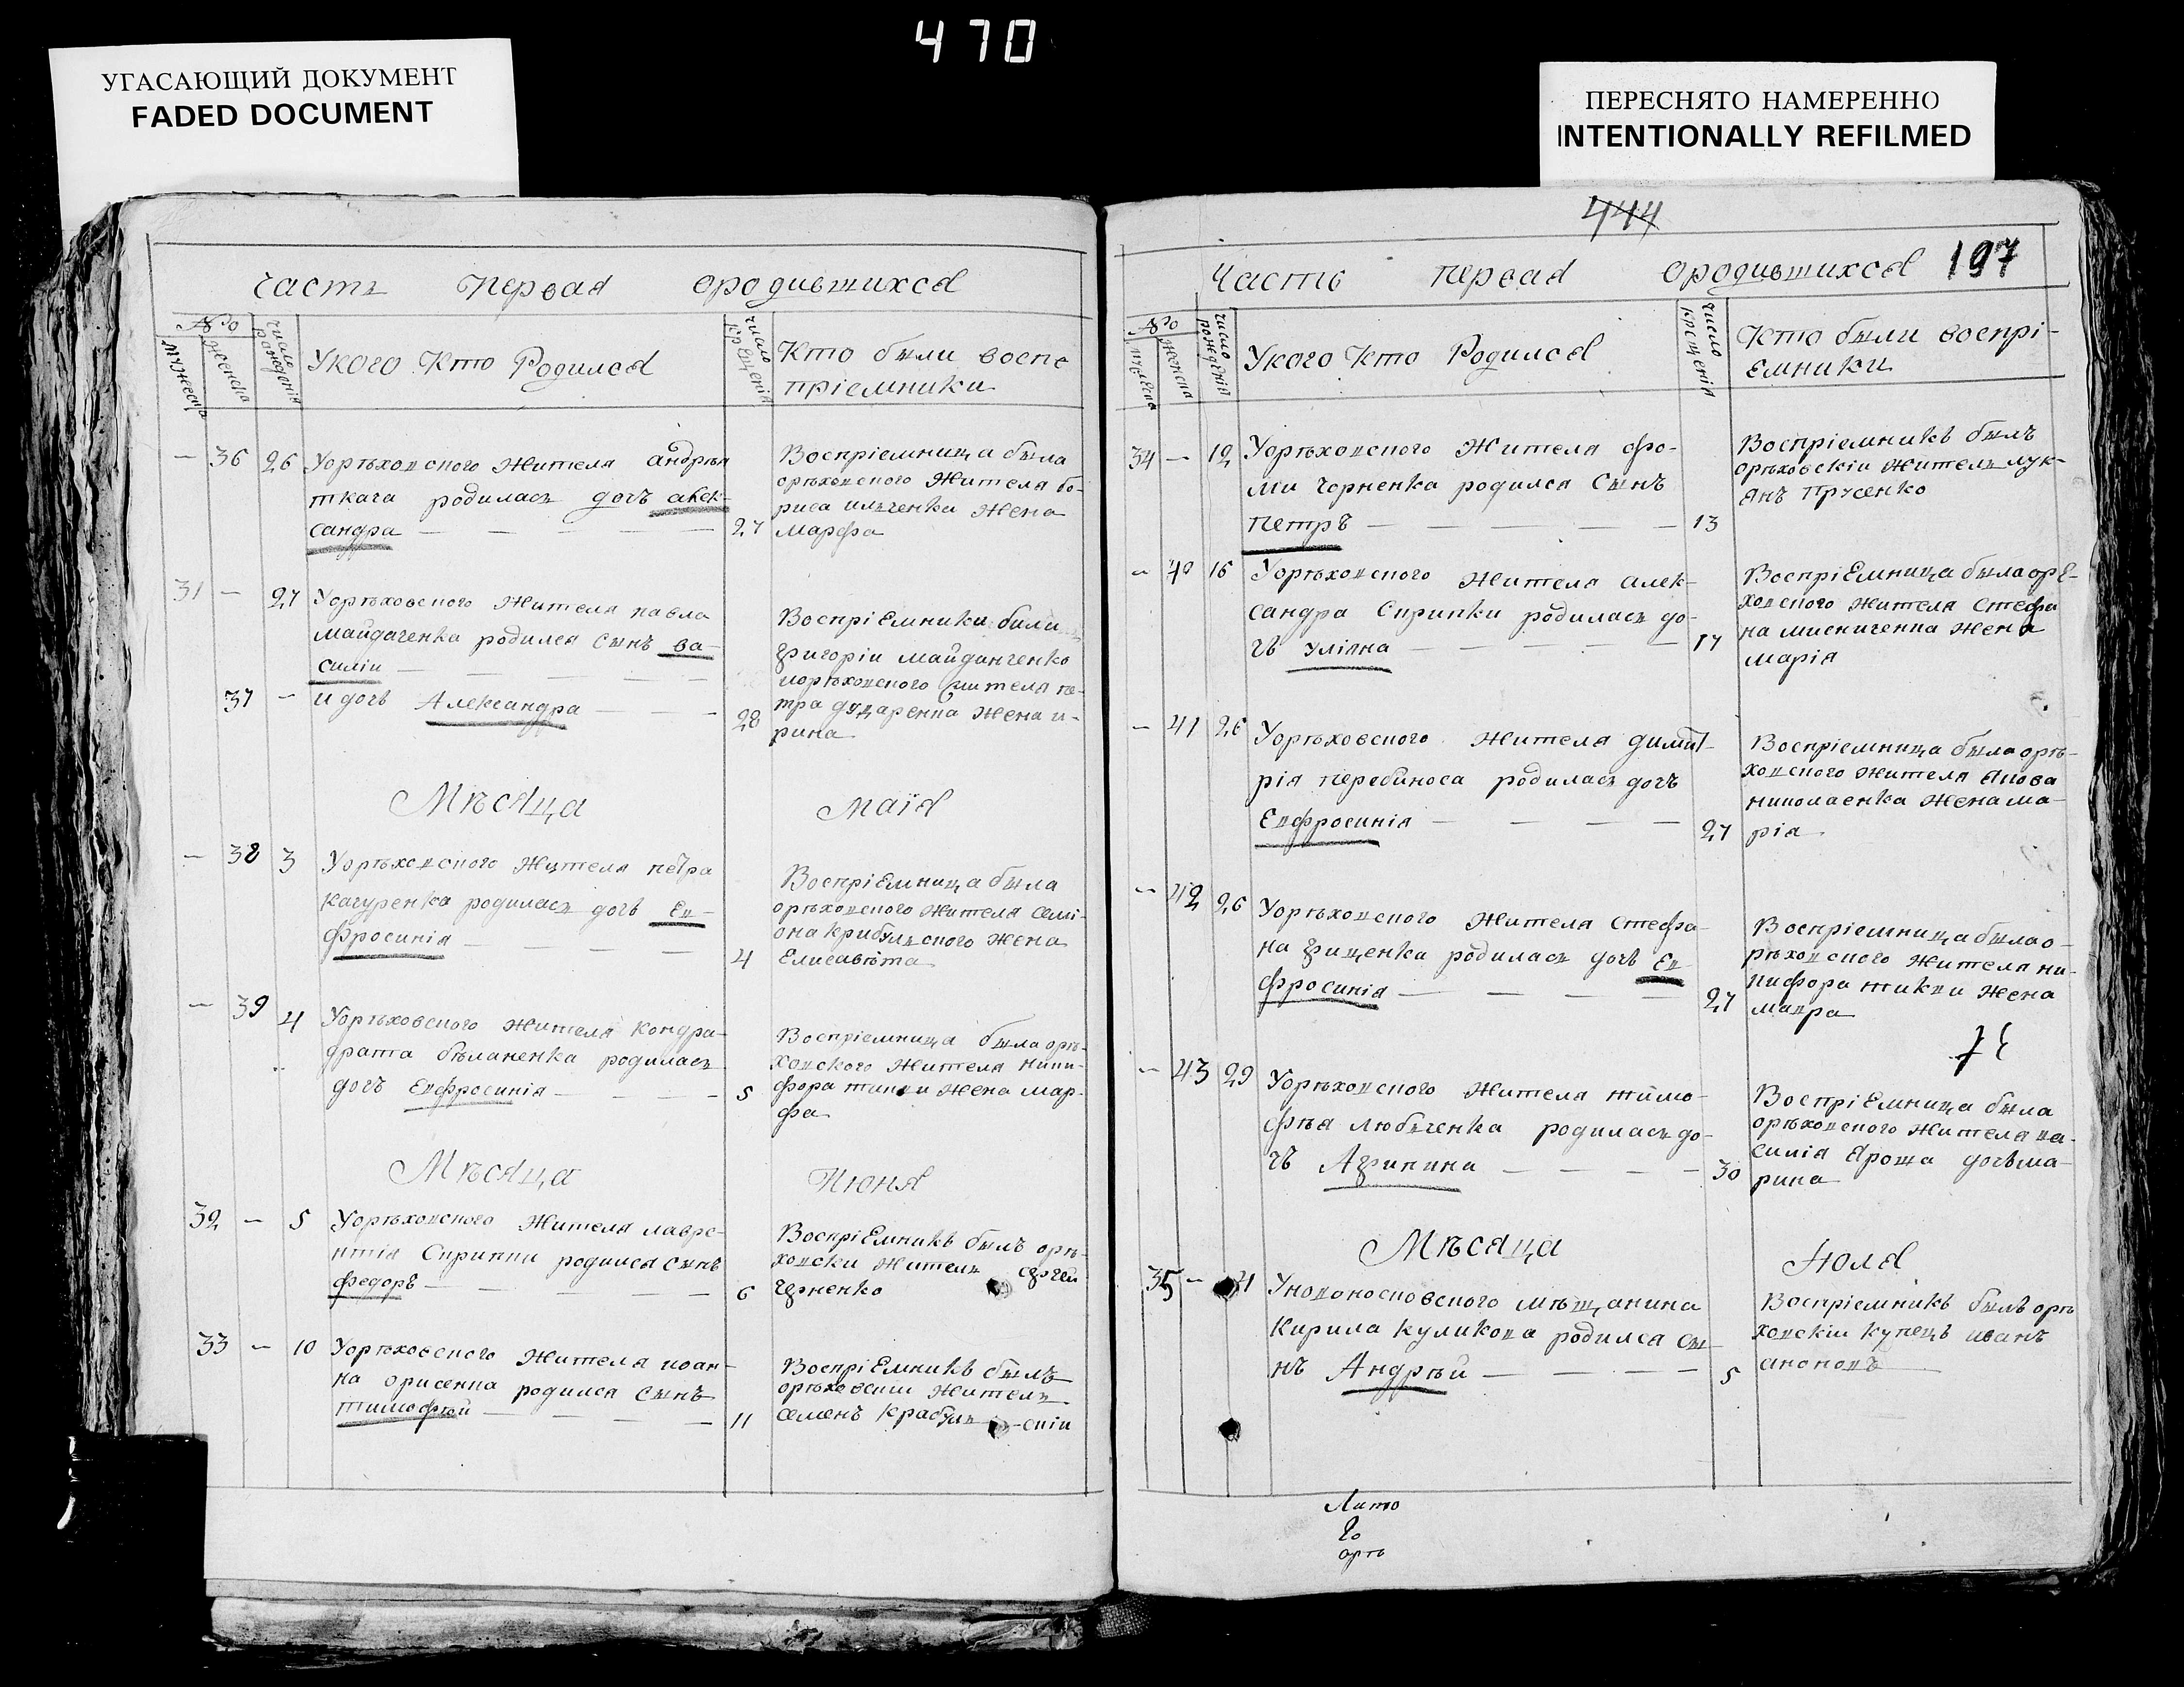 470
УГАСАЮЩИЙ ДОКУМЕНТ
FADED DOCUMENT
ПЕРЕСНЯТО НАМЕРЕННО
INTENTIONALLY REFILMED
часть первая ородившихся
№
мужеска
женска
число рожденія
Укого Кто Родился
число крещенія
Кто были воспе
пріемники
— 36 26 Уорѣховского Жителя андрѣя
ткача родилась дочь алек-
сандра — 27
Воспріемница была
орѣховского Жителя бо-
риса ильченка Жена
марфа
31 — 27 Уорѣховского Жителя павла
майдаченка родился Сынъ ва-
силіи —
37 — и дочь Александра — 28
Воспріемники были
григоріи майданченко
иорѣховского Жителя пе-
тра дударенка Жена и-
рина
Мѣсяца маія
— 38 3 Уорѣховского Жителя петра
качуренка родилась дочь Ев-
фросинія — 4
ВоспріЕмница была
орѣховского Жителя семі-
она крибульского Жена
Елисавѣта
— 39 4 Уорѣховского Жителя кондра-
драта бѣланенка родилась
дочъ Евфросинія — 5
Воспріемница была орѣ-
ховского Жителя ники-
фора тикви Жена мар-
фа
Мѣсяца Июня
32 — 5 Уорѣховского Жителя лавре-
нтія Скрипки родился Сынъ
федоръ — 6
ВоспріЕмникъ былъ орѣ-
ховски Житель сергей
черненко
33 — 10 Уорѣховского Жителя иоан-
на орисенка родился Сынъ
тимофѣй — 11
ВоспріЕмникъ былъ
орѣховскии Житель
семенъ крабуль-скіи
444
197
Часть первая ородившихся
№
женска
число рожденія
Укого Кто Родился
число крещенія
Кто были воспрі-
Емники
34 — 12 Уорѣховского Жителя фо-
ми Черненка родился Сынъ
Петръ — 13
Воспріемникъ былъ
орѣховскіи Житель лук-
янъ Прусенко
— 40 16 Уорѣховского Жителя алек-
сандра Скрипки родилась до-
чъ уліяна — 17
ВоспріЕмница была орЕ-
ховского Жителя Стефа
на мисниченка Жена
марія
— 41 26 Уорѣховского Жителя димит-
рія перебиноса родилась дочъ
Евфросинія — 27
Воспріемница была орѣ-
ховского Жителя Якова
николаенка Жена ма-
рія
— 42 26 Уорѣховского Жителя Стефа-
на грищенка родилась дочъ Ев
фросинія — 27
Воспріемница была о-
рѣховского Жителя ни-
кифора тикви Жена
мавра
— 43 29 Уорѣховского Жителя тимо-
фѣя любченка родилась до-
чъ Агрипина — 30
ВоспріЕмница была
орѣховского Жителя ва-
силія Яроша дочь ма-
рина
Мѣсяца Июля
35 — Уновомосковского мѣщанина
Кирила куликова родился Сы-
нъ Андрѣй — 5
Воспріемникъ былъ орѣ
ховскіи купецъ иванъ
орѣ